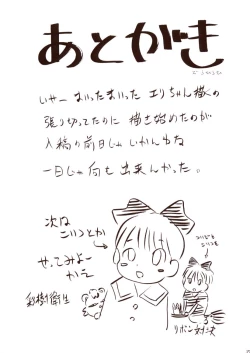 あとがき
いやー まいったまいった エリちゃん描くの
張り切ってたのに 描き始めたのが
入稿の前日じゃ いかんわな
一日じゃ何も出来んかった。
次は
こいつとか
やってみよー
かえ
リボン対決